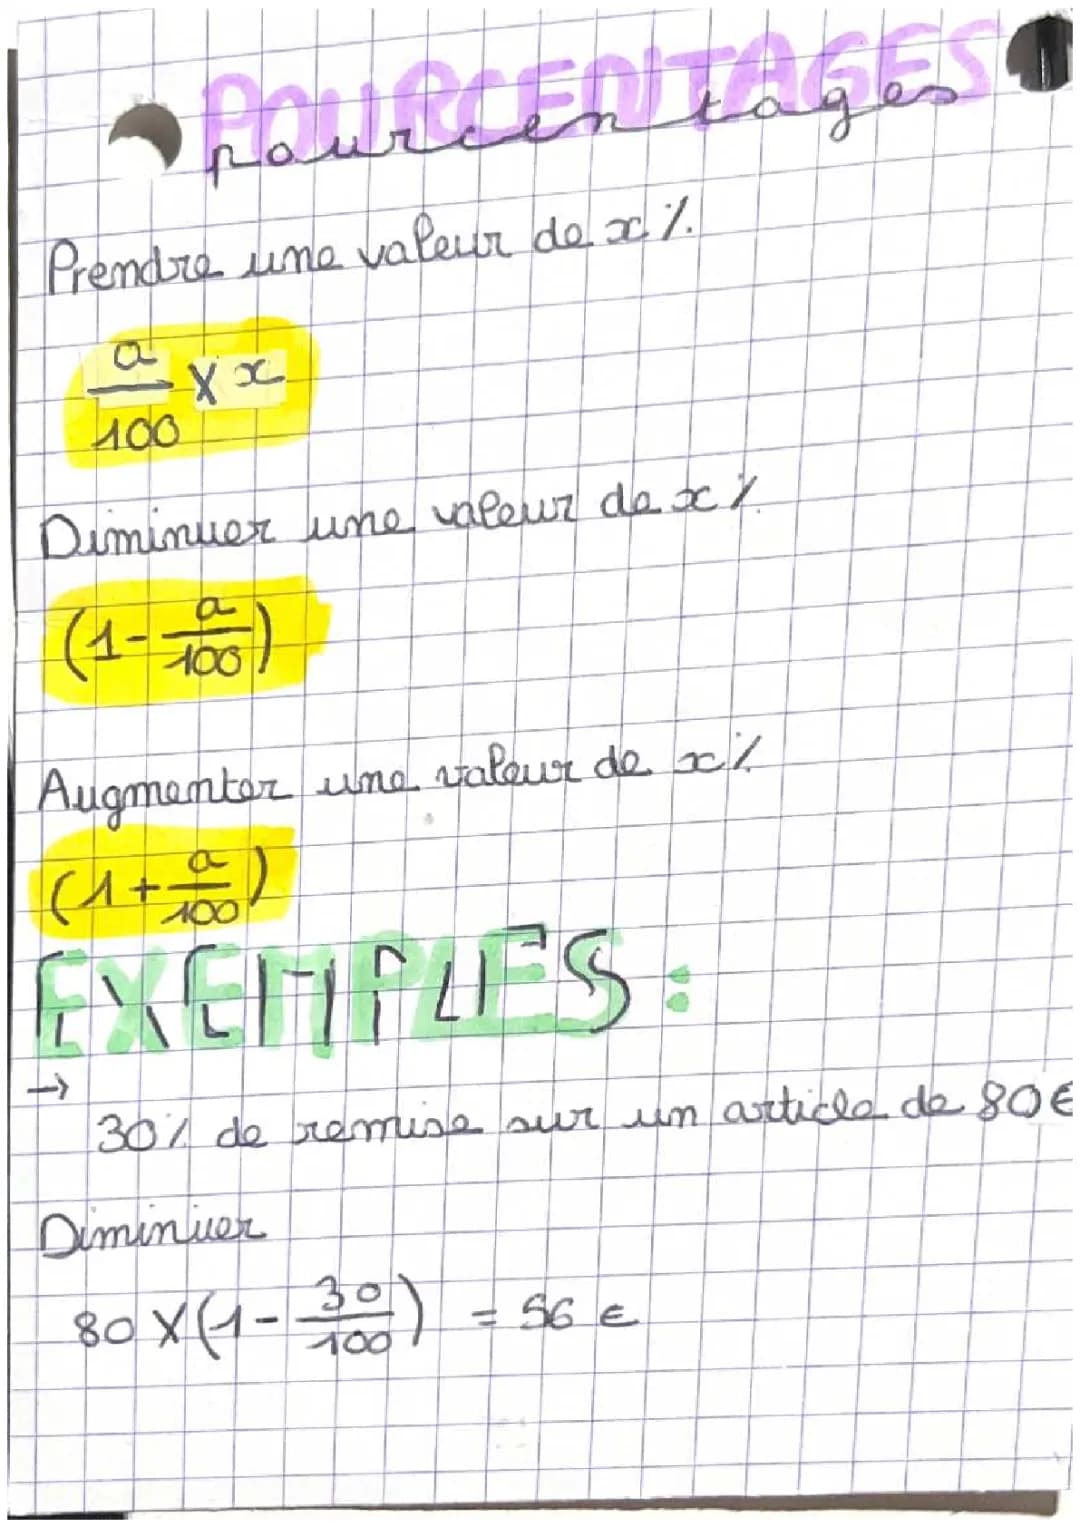 POURCENTAGES
pourcentages
Prendre une valeur de x %.
a/100 × x
Diminuer une valeur de x %
(1 - a/100)
Augmenter une valeur de x %
(1 + a/100)
EXEMPLES :
→
30% de remise sur un article de 80€
Diminuer
80 × (1 - 30/100) = 56 €